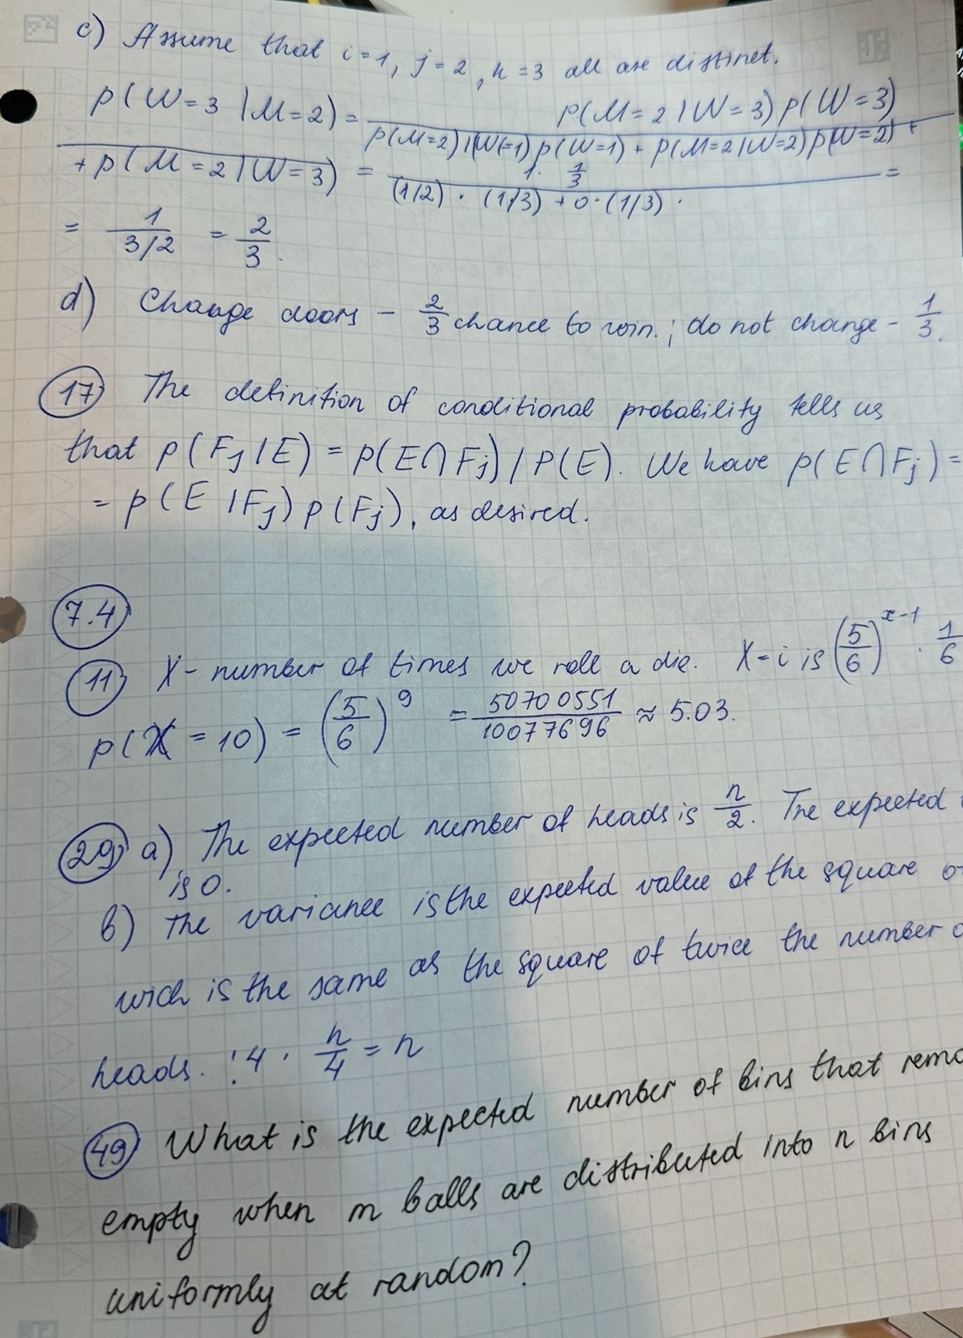 c) Assume that i=1, j=2, k=3 all are distinct.
p(W=3 |M=2) = p(M=2|W=3)p(W=3)
p(M=2)|(W=1)p(W=1) + p(M=2|W=2)p(W=2) +
+ p(M=2|W=3) = 1 · 1/3 =
(1/2) · (1/3) + 0·(1/3) ·
= 1 / 3/2 = 2/3.
d) Change doors - 2/3 chance to win.; do not change - 1/3.
17) The definition of conditional probability tells us
that p(Fj|E) = p(E∩Fj)/P(E). We have p(E∩Fj) =
= p(E|Fj)p(Fj), as desired.
7.4
11) X- number of times we roll a die. X=i is (5/6)^x-1 · 1/6
p(X=10) = (5/6)^9 = 50700551/10077696 ≈ 5.03.
29) a) The expected number of heads is n/2. The expected
is 0.
b) The variance is the expected value of the square of
wich is the same as the square of twice the number
heads. : 4 · n/4 = n
49) What is the expected number of bins that rema
empty when m balls are distributed into n bins
uniformly at random?